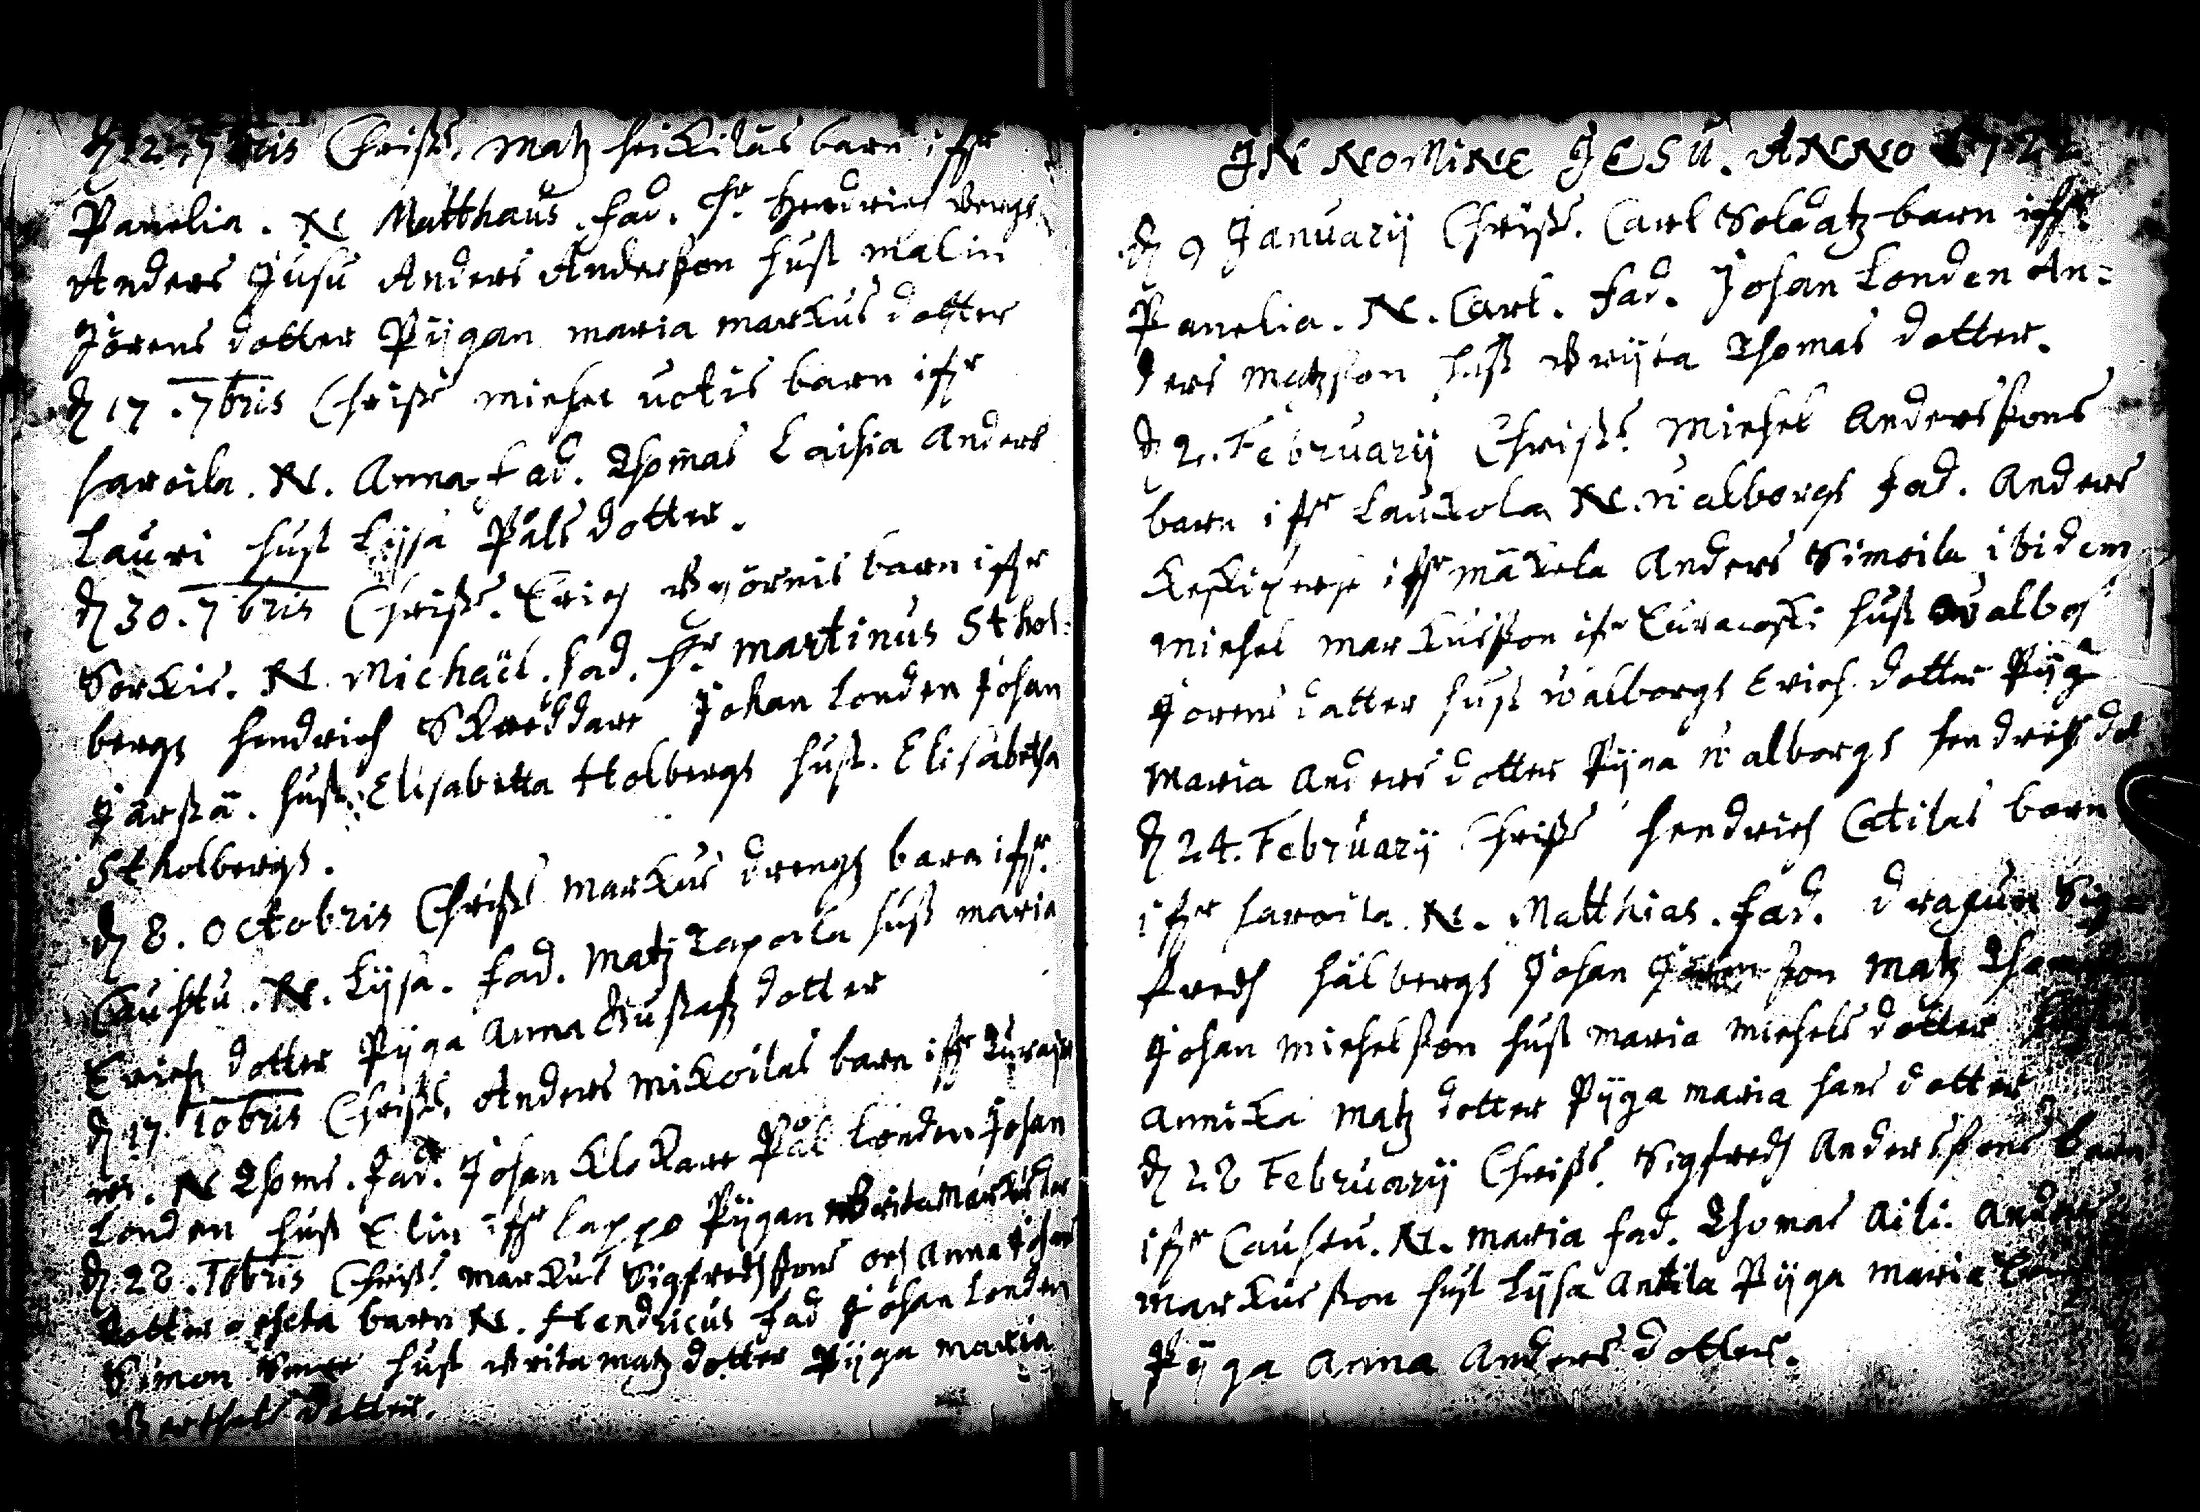 d. 12. 7bris Christs. Matz heikiläs barn ifrå
Panelia. N Matthaus. fad. Hr. Hendrich Bergh
Anders Jusu Anders Anderson hust malin
Jörens dotter Pijgan maria markus dotter
d 17. 7bris Christs michel uotis barn ifr
haroila. N. Anna fad. Thomas Laihia Anders
Lauri hust Lijsa Påls dotter.
d 30. 7bris Christs. Erich Björnis barn ifr
Sorkis. N. Michaël. fad. Hr. Martinus Sthol-
bergs hendrich Skreddare Johan Londen Johan
hust. Elisabetta Holbergs hust. Elisabetha
Stholbergs.
d 8. Octobris Christs Markus drengs barn ifr.
Cauhtu. N. Lijsa. fad. Matz Lapoila hust maria
Erichs dotter Pijga Anna Gustafs dotter
d 17. 10bris Christs. Anders mikoilas barn ifr
N Thoms. fad. Johan Klokare Pål Londen Johan
Londen hust Elin ifr Lappo Pijgan Brita Markus
d 28. 10bris Christs. markus Sigfredssons och Anna Johans
dotter oächta barn N. Hendricus fad Johan Londen
Simon hust Brita matz dotter Pijga maria
Berthels dotter.
IN NOMINE JESU. ANNO 1722
d 9 Januarij Christs. Carl Soldatz barn ifr
Panelia. N. Carl. fad. Johan Londen An-
ders Matzson hust Brijta Thomas dotter.
d 2. Februarij Christs. Michel Anderssons
barn ifr Laukola N. Walborgs fad. Anders
ifr mäkela Anders Simoila ibidem
Michel Markusson ifr hust Walbor
Jorens datter hust Walborgs Erichs dotter Pijga
Maria Anders dotter Pijga Walborgs hendrichs dot
d 24. Februarij Christs hendrich Catilas barn
ifr haroila. N. Matthias. fad. dragun Sig-
fredh hälbergs Johan son Matz
Johan Michelson hust maria Michels dotter
Annika Matz dotter Pijga maria hans dotter
d 28 Februarij Christs. Sigfredh Anderssons barn
ifr Cauhtu. N. maria fad. Thomas Aili. Anders
Markusson hust Lijsa Antila Pijga maria
Pijga Anna Anders dotter.